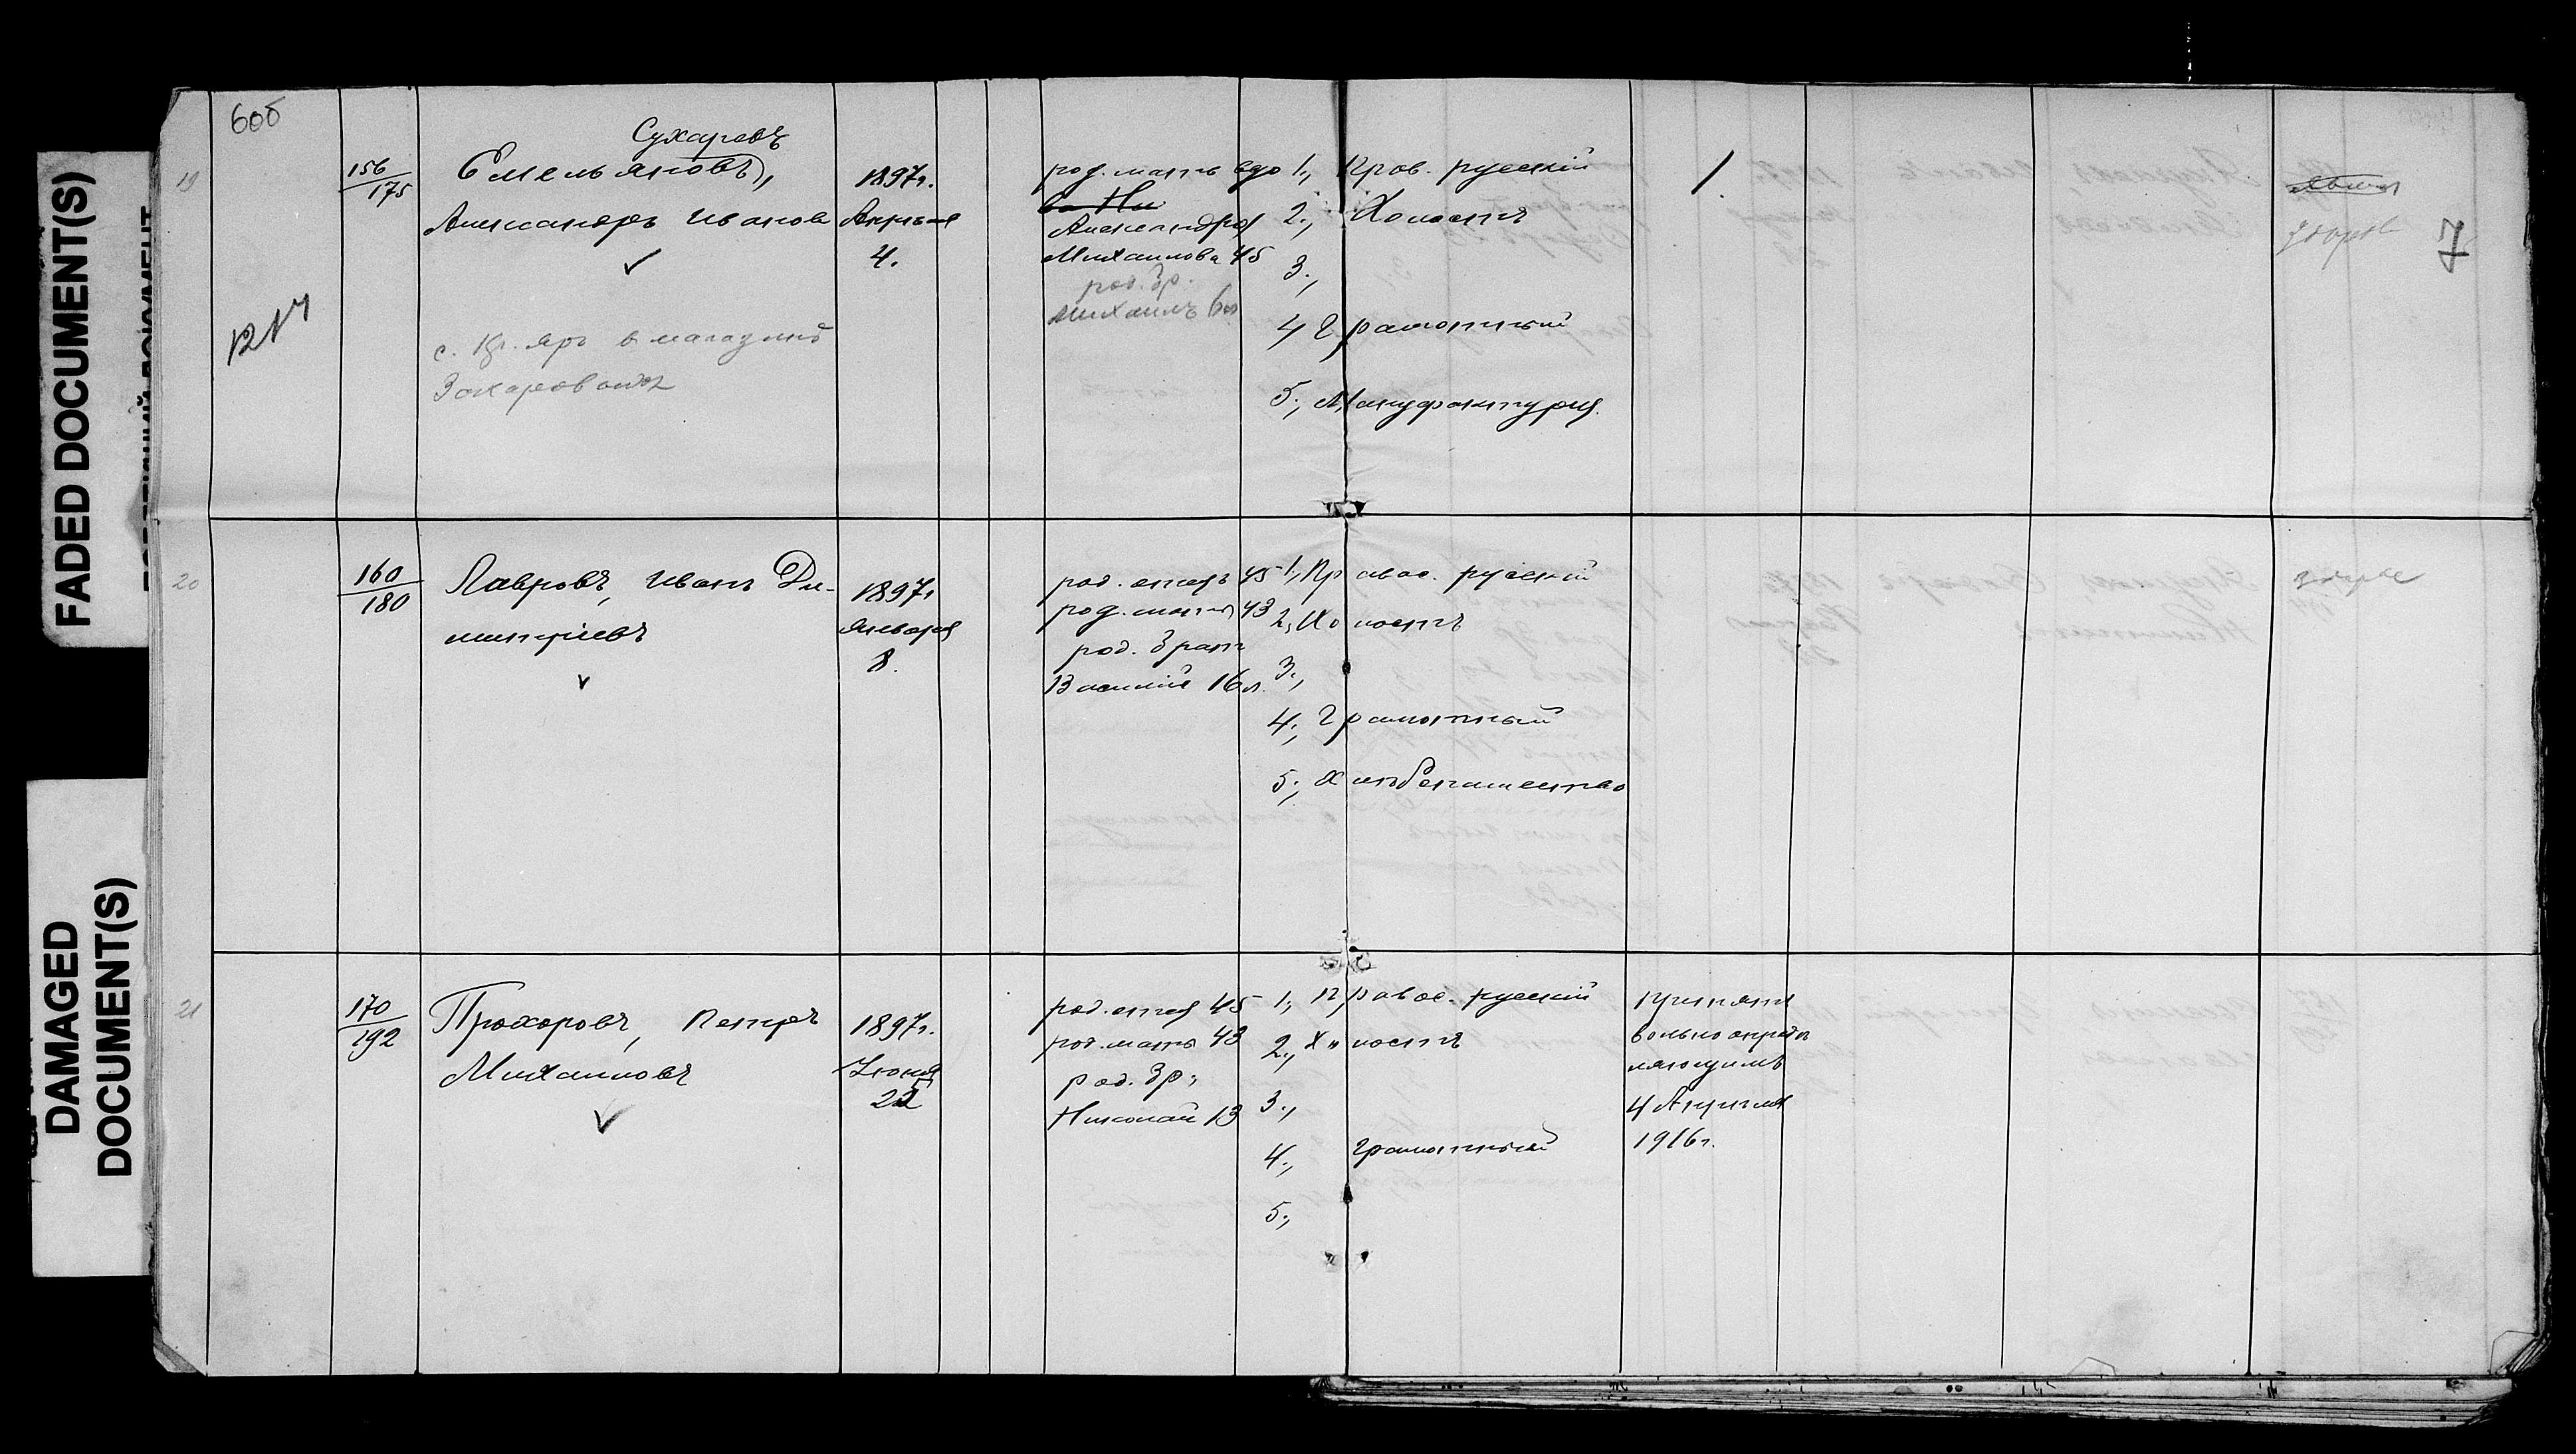 FADED DOCUMENT(S)
DAMAGED
DOCUMENT(S)
7
606
19
156/175
Сухаревъ
Емельяновъ,
Александръ Иванов
1897г.
Апрѣля
4.
род. мать вдо
Александра
Михайлова 45
род. бр.
Михаилъ 6л
1., Прав. русскій
2., Холостъ
3.,
4 Грамотный
5., Мануфактурия.
1.
с. Кр. яръ в магазинѣ
20
160/180
Лавровъ, Иванъ Ди-
митріевъ
1897г
Января
8.
род. отецъ 45
род. мать 43
род. братъ
Василій 16л.
1., Правос. русскій
2., Холостъ
3.,
4., Грамотный
5., Хлѣбопашество
21
170/192
Прохоровъ, Петръ
Михаиловъ
1897г.
Іюня
22
род. отец 45
род. мать 43
род. бр.
Николай 13
1., Правос. русскій
2., Холостъ
3.,
4., грамотный
5.,
Принятъ
вольноопредѣ
ляющимъ
4 Апрѣля
1916г.